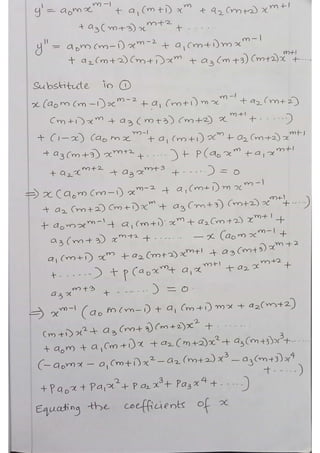 y' = a₀m x^{m-1} + a₁(m+1) x^m + a₂(m+2) x^{m+1}
+ a₃(m+3) x^{m+2} + .....
y'' = a₀m(m-1) x^{m-2} + a₁(m+1) m x^{m-1}
+ a₂(m+2)(m+1) x^m + a₃(m+3)(m+2) x^{m+1} + ...
Substitute in ①
x(a₀m(m-1) x^{m-2} + a₁(m+1) m x^{m-1} + a₂(m+2)
(m+1) x^m + a₃(m+3)(m+2) x^{m+1} + ......)
+ (1-x) (a₀m x^{m-1} + a₁(m+1) x^m + a₂(m+2) x^{m+1}
+ a₃(m+3) x^{m+2} + .....) + P(a₀x^m + a₁x^{m+1}
+ a₂x^{m+2} + a₃x^{m+3} + ....) = 0
⇒ x(a₀m(m-1) x^{m-2} + a₁(m+1) m x^{m-1}
+ a₂(m+2)(m+1) x^m + a₃(m+3)(m+2) x^{m+1} + ....)
+ a₀m x^{m-1} + a₁(m+1) x^m + a₂(m+2) x^{m+1} +
a₃(m+3) x^{m+2} + ...... - x(a₀m x^{m-1} +
a₁(m+1) x^m + a₂(m+2) x^{m+1} + a₃(m+3) x^{m+2}
+ ......) + P(a₀x^m + a₁x^{m+1} + a₂x^{m+2} +
a₃x^{m+3} + ......) = 0
⇒ x^{m-1} (a₀m(m-1) + a₁(m+1) mx + a₂(m+2)
(m+1)x² + a₃(m+3)(m+2)x³ + .....
+ a₀m + a₁(m+1)x + a₂(m+2)x² + a₃(m+3)x³ + ...
(-a₀mx - a₁(m+1)x² - a₂(m+2)x³ - a₃(m+3)x⁴
+ ....)
+ Pa₀x + Pa₁x² + Pa₂x³ + Pa₃x⁴ + .....)
Equating the coefficients of x